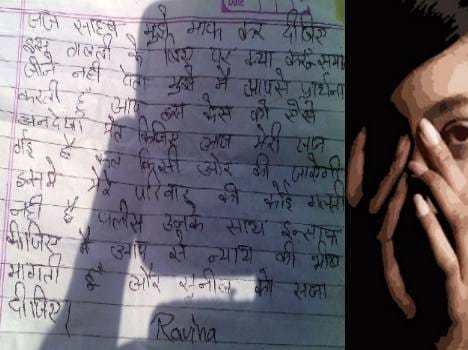 जज साहब मुझे माफ कर दीजिए
इस गलती के लिए पर क्या करूँ समाज
जीने नही देता मुझे मै आपसे प्रार्थना
करती हूँ आप इस केस को ऐसे
अनदेखा मत किजिए आज मेरी जान
गई है कल किसी और की जायेगी
इसमे मेरे परिवार की कोई गलती
नही है पलीस उनके साथ इन्साफ
कीजिए मै आप से न्याय की भीख
मांगती हूँ और सुनील को सजा
दीजिए।
Ravina